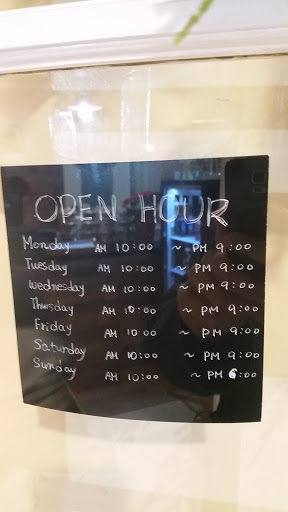 OPEN HOUR
Monday AM 10:00 ~ PM 9:00
Tuesday AM 10:00 ~ PM 9:00
Wednesday AM 10:00 ~ PM 9:00
Thursday AM 10:00 ~ PM 9:00
Friday AM 10:00 ~ PM 9:00
Saturday AM 10:00 ~ PM 9:00
Sunday AM 10:00 ~ PM 6:00